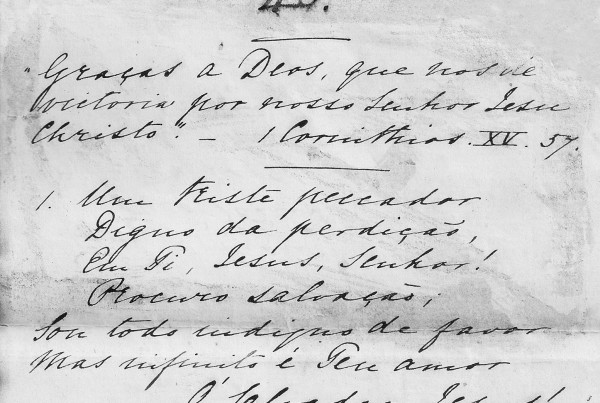 "Graças a Deos, que nos dé
victoria por nosso Senhor Jesu
Christo." — 1 Corinthios. XV. 57.
1. Um triste peccador
Digno da perdição,
Em Ti, Jesus, Senhor!
Procuro salvação;
Sou todo indigno de favor
Mas infinito é Teu amor
Ó Salvador Jesus!